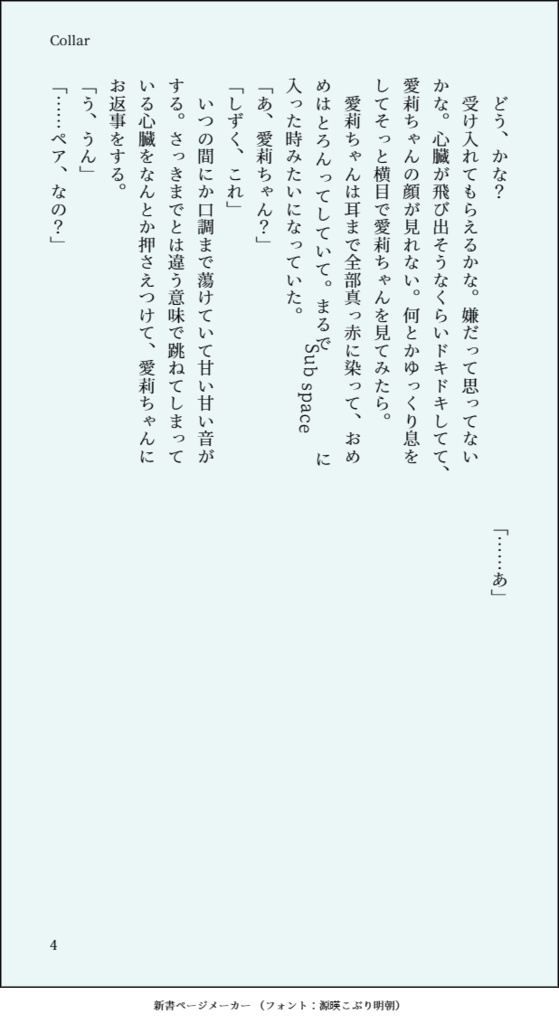 Collar
どう、かな？
受け入れてもらえるかな。嫌だって思ってない
かな。心臓が飛び出そうなくらいドキドキしてて、
愛莉ちゃんの顔が見れない。何とかゆっくり息を
してそっと横目で愛莉ちゃんを見てみたら。
愛莉ちゃんは耳まで全部真っ赤に染って、おめ
めはとろんってしていて。まるでSub spaceに
入った時みたいになっていた。
「あ、愛莉ちゃん？」
「しずく、これ」
いつの間にか口調まで蕩けていて甘い甘い音が
する。さっきまでとは違う意味で跳ねてしまって
いる心臓をなんとか押さえつけて、愛莉ちゃんに
お返事をする。
「う、うん」
「……ペア、なの？」
「……あ」
4
新書ページメーカー（フォント：源暎こぶり明朝）